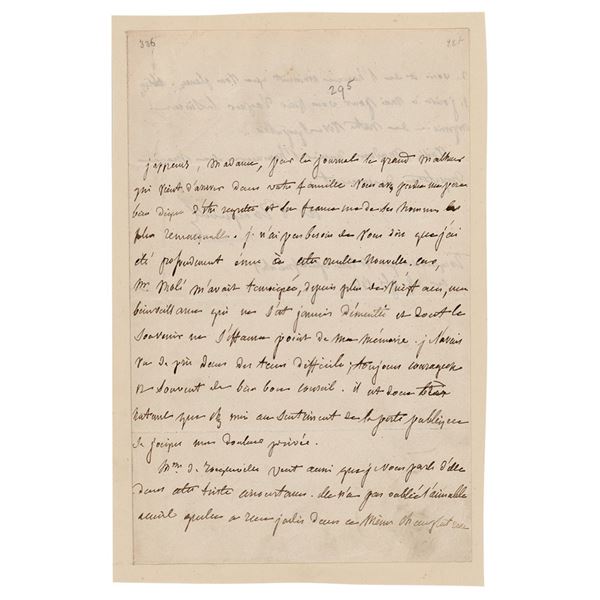 336
295
j'apprens, Madame, par les journals le grand malheur
qui vient d'arriver dans votre famille. Vous avez perdu un père
bien digne d'être regretté et la france un de ses hommes les
plus remarquables. je n'ai pas besoin de vous dire que j'ai
été profondément ému à cette cruelle nouvelle. car,
Mr. Molé m'avait temoigné, depuis plus de vingt ans, une
bienveillance qui ne s'est jamais démentie et dont le
souvenir ne s'effacera point de ma mémoire. je l'avais
vu de près dans des tems difficiles; toujours courageux
et souvent de bien bon conseil. il est donc bien
naturel que chez moi au sentiment de la perte publique
se joigne une douleur privée.
Mme de Tocqueville veut aussi que je vous parle d'elle
dans cette triste circonstance. elle n'a pas oublié l'aimable
accueil qu'elle a reçu jadis dans ce même champlatreux